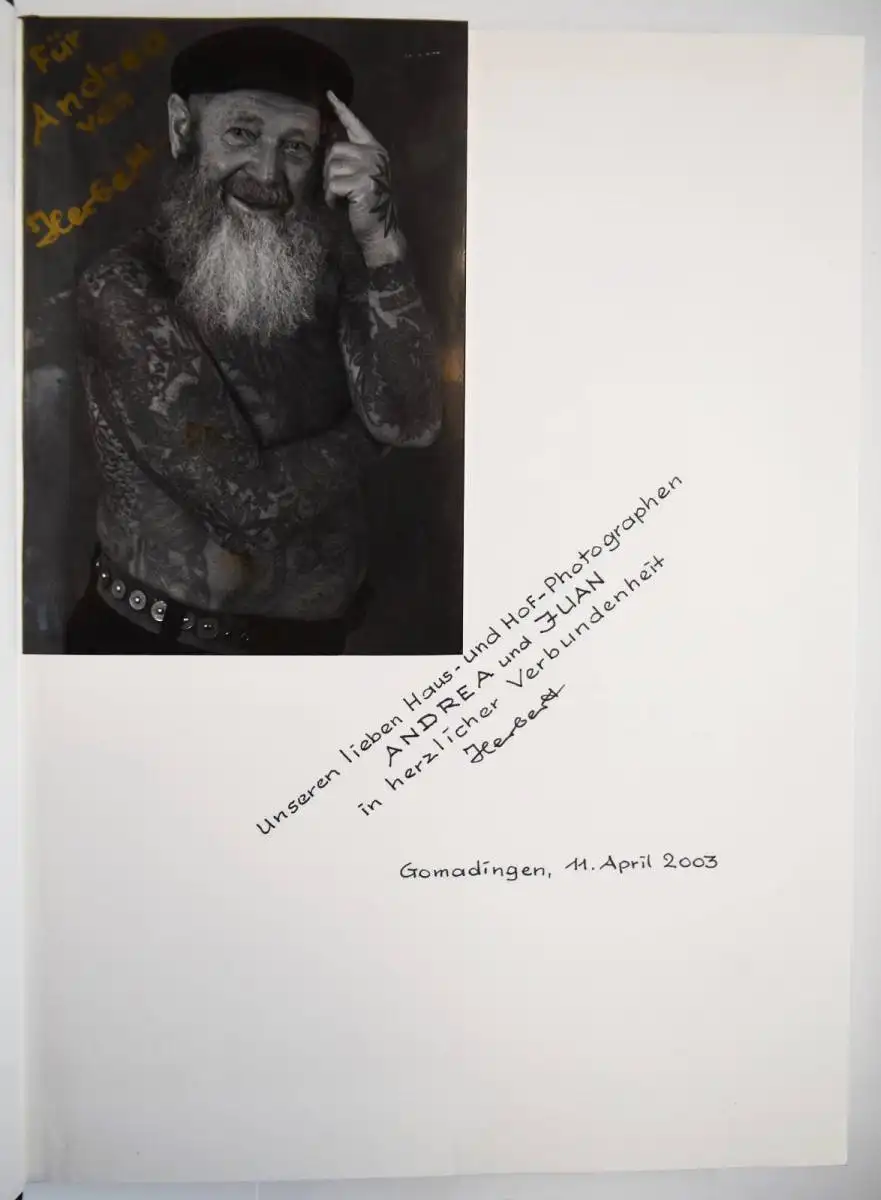 Für
Andrea
von
Herbert
Unseren lieben Haus- und Hof-Photographen
ANDREA und JUAN
in herzlicher Verbundenheit
Herbert
Gomadingen, 11. April 2003